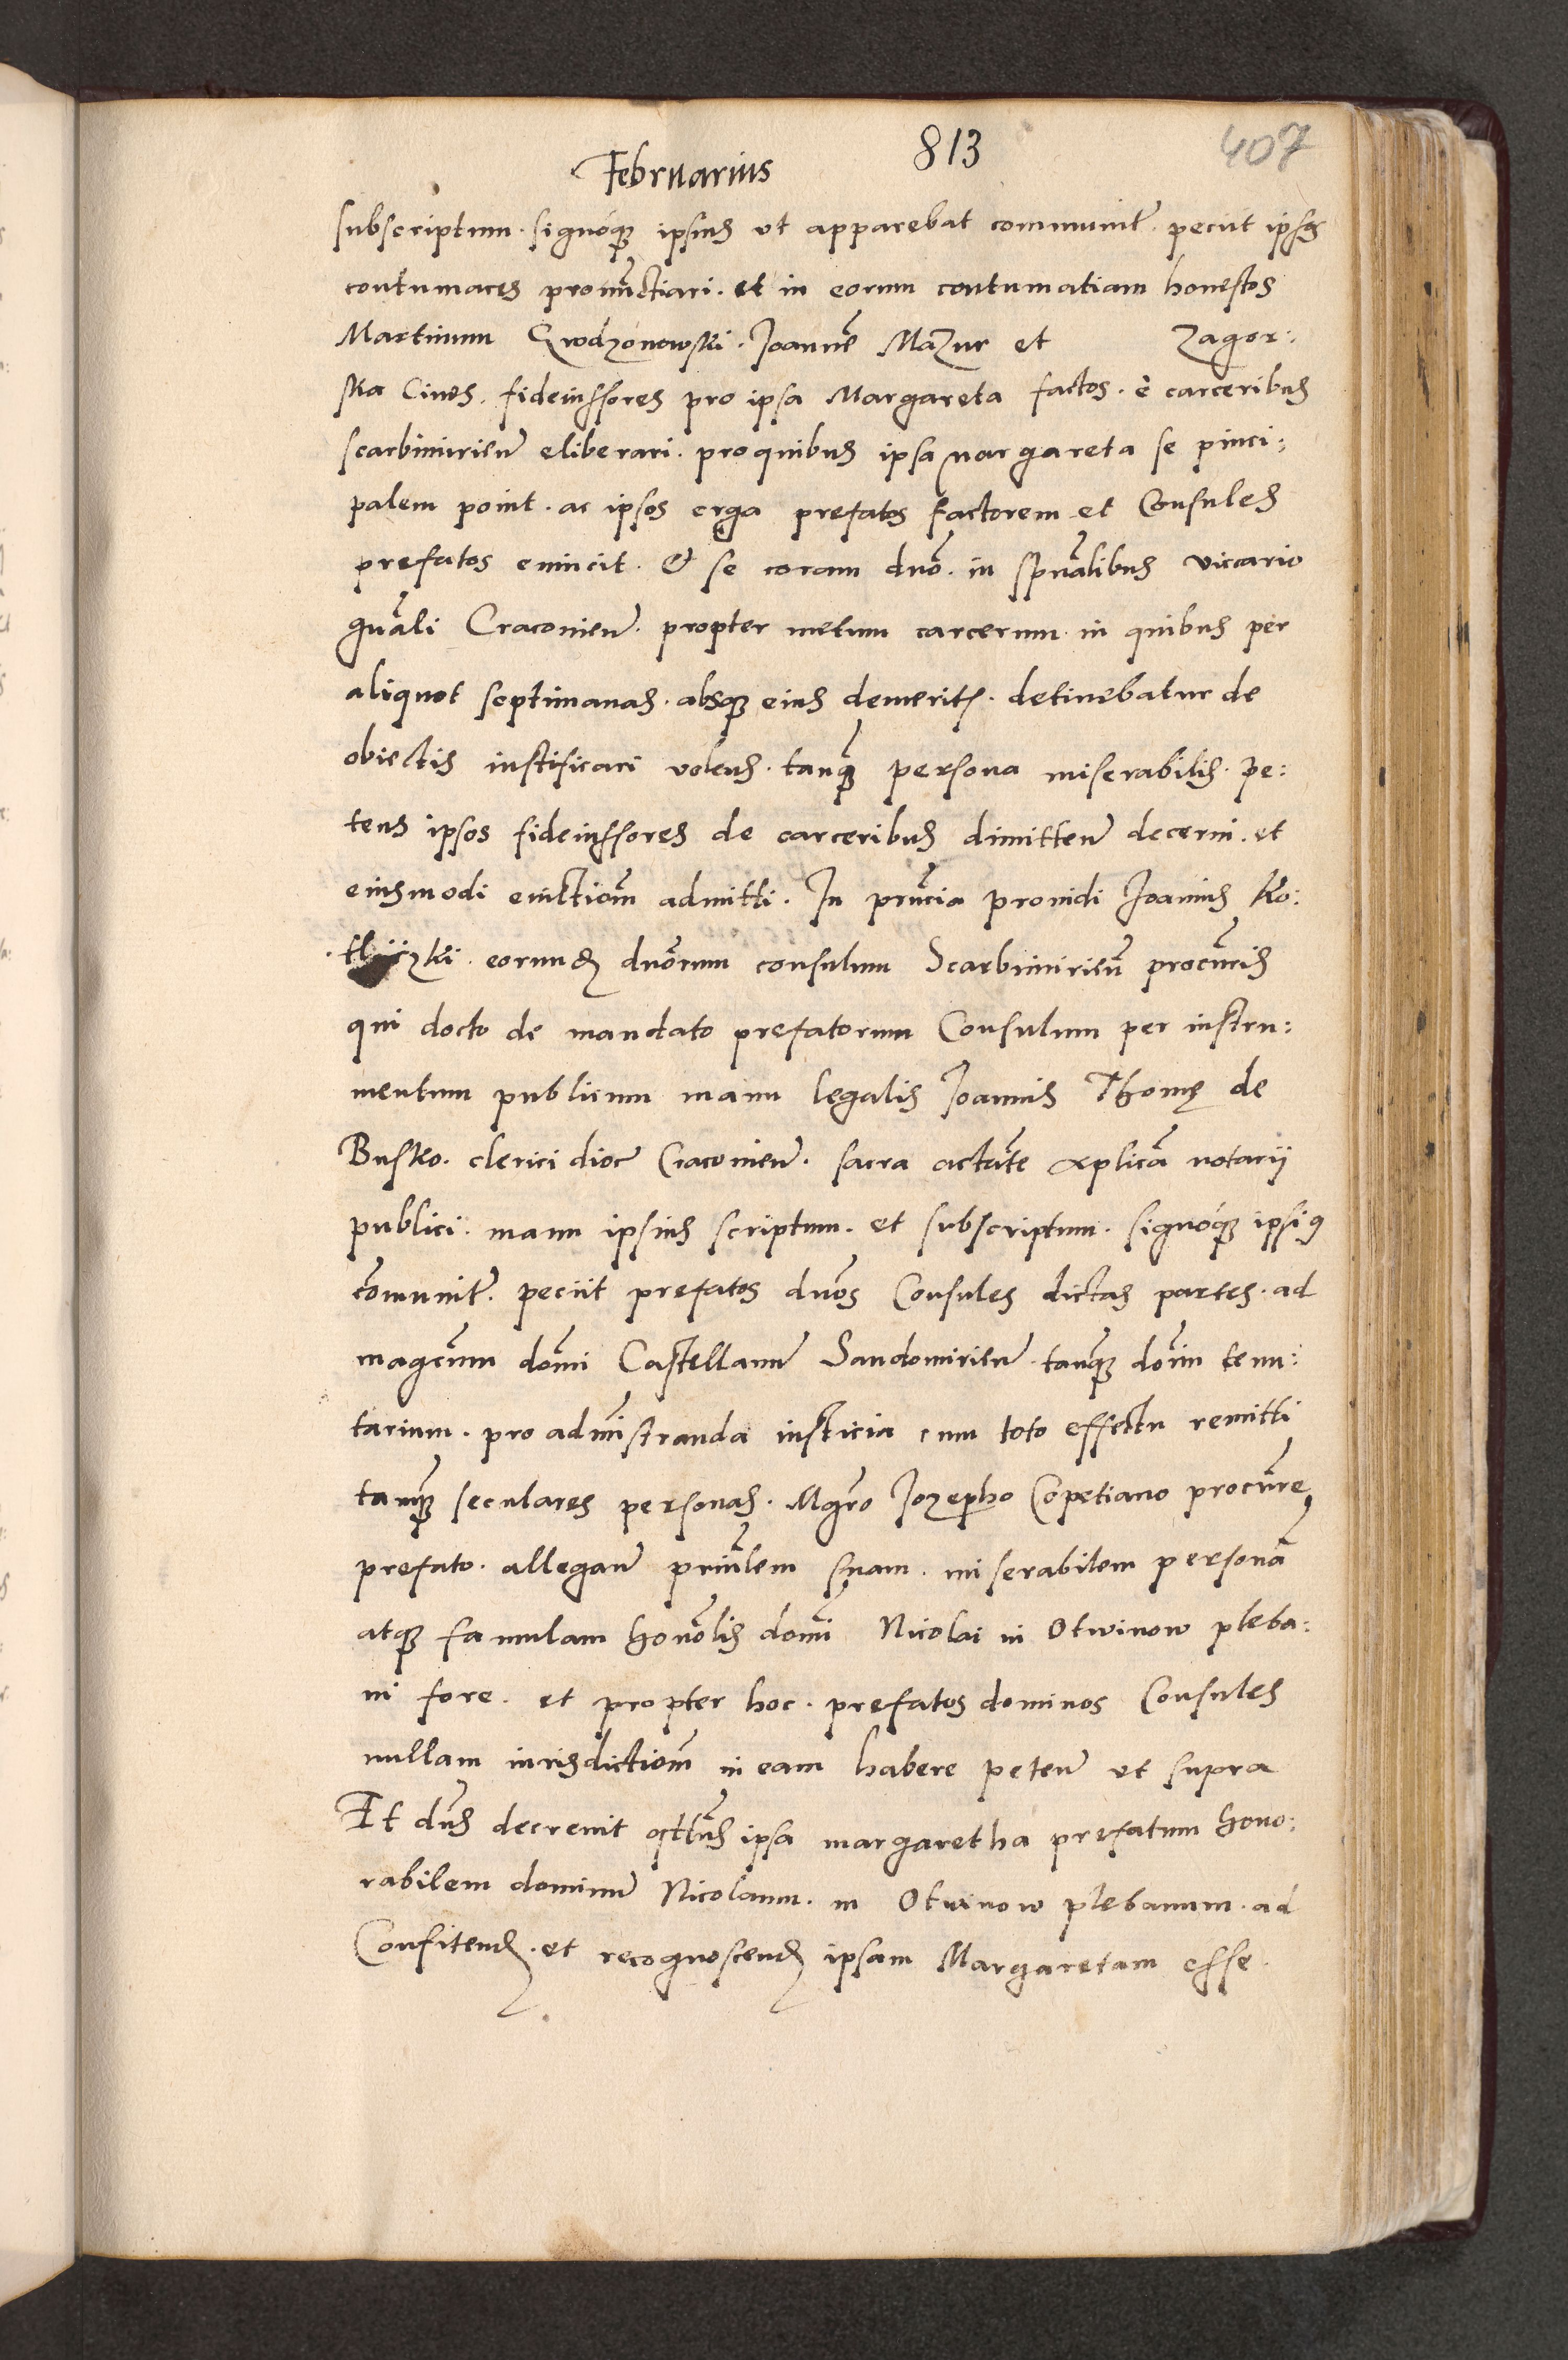 813 407
Februarius
subscriptum. signóq3 ipsius ut apparebat communiť. peciit ipsos
contumaces pronu͂ctiari. et in eorum contumatiam honestos
Martinum Gwodzonowski. Joannē Mazur et Zagor:
ska Ciues. fideiussores pro ipsa Margareta factos. è carceribus
scarbimirieñ eliberari. pro quibus ipsa margareta se pinci:
palem point. ac ipsos erga prefatos factorem et Consules
prefatos euincit. & se coram dnō. in spūalibus viccario
gnāli Cracouieñ. propter metum carcerum in quibus per
aliquot septimanas. absq3 eius demeritis. detinebatur de
obiectis iustificari volens. tanq̄3 persona miserabilis. pe:
tens ipsos fideiussores de carceribus dimitteñ decerni. et
eiusmodi euictiōm admitti. In pn̄cia prouidi Joannis Ko:
eorund3 dnōrum consulum Scarbimirieñ procūris
qui docto de mandato prefatorum Consulum per instru:
mentum publicum manu legalis Joannis Thomę de
Busko. clerici dioc̄ Cracouieñ. sacra actāte aplicā notarij
publici. manu ipsius scriptum. et subscriptum. signóq3 ipsi9
cōmuniť. peciit prefatos dnōs Consules dictas partes. ad
magcūm domī Castellanū Sandomirieñ. tanq̄3 domī tenu:
tarium. pro admīstranda iusticia cum toto effectu remitti
tanq̄3 seculares personas. Mgrō Jozepho Copetiano procūre
prefato. allegañ prin̄lem suam. miserabilem personā
atq3 famulam honōlis domī Nicolai in Otwinow pleba:
ni fore. et propter hoc. prefatos dominos Consules
nullam iurisdictiōm in eam habere peteñ ut supra
Et dn̄s decreuit ipsa margaretha prefatum hono:
rabilem dominū Nicolaum. in Otwinow plebanum. ad
Confitend3. et recognoscend3 ipsam Margaretam esse.